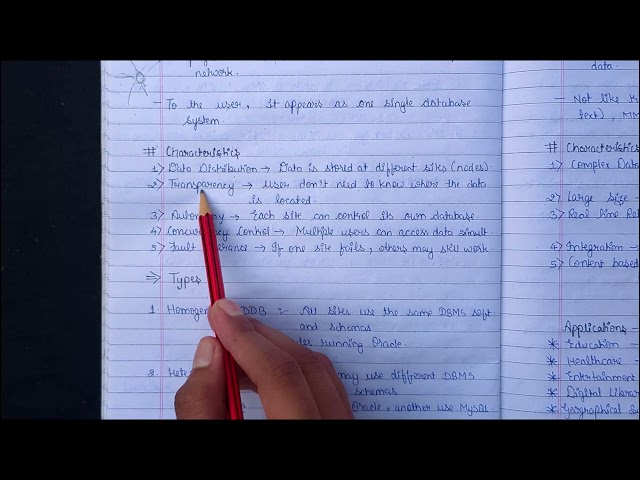 network.
- To the user, it appears as one single database
system.
# Characteristics
1> Data Distribution → Data is stored at different sites (nodes).
2> Transparency → User don't need to know where the data
is located.
3> → Each site can control its own database.
4> Concurrency Control → Multiple users can access data simult
5> Fault → If one site fails, others may still work.
⇒ Types
1. DDB :- All sites use the same DBMS soft
and schemas
running Oracle.
2. may use different DBMS
schemas
Oracle, another use MySQL.
data.
- Not like
text), MM
# Characteristics
1> Complex Data
2> Large size -
3> Real line Re
4> Integration →
5> Content based
Applications
* Education -
* Healthcare
* Entertainment
* Digital Librar
* Geographical Su